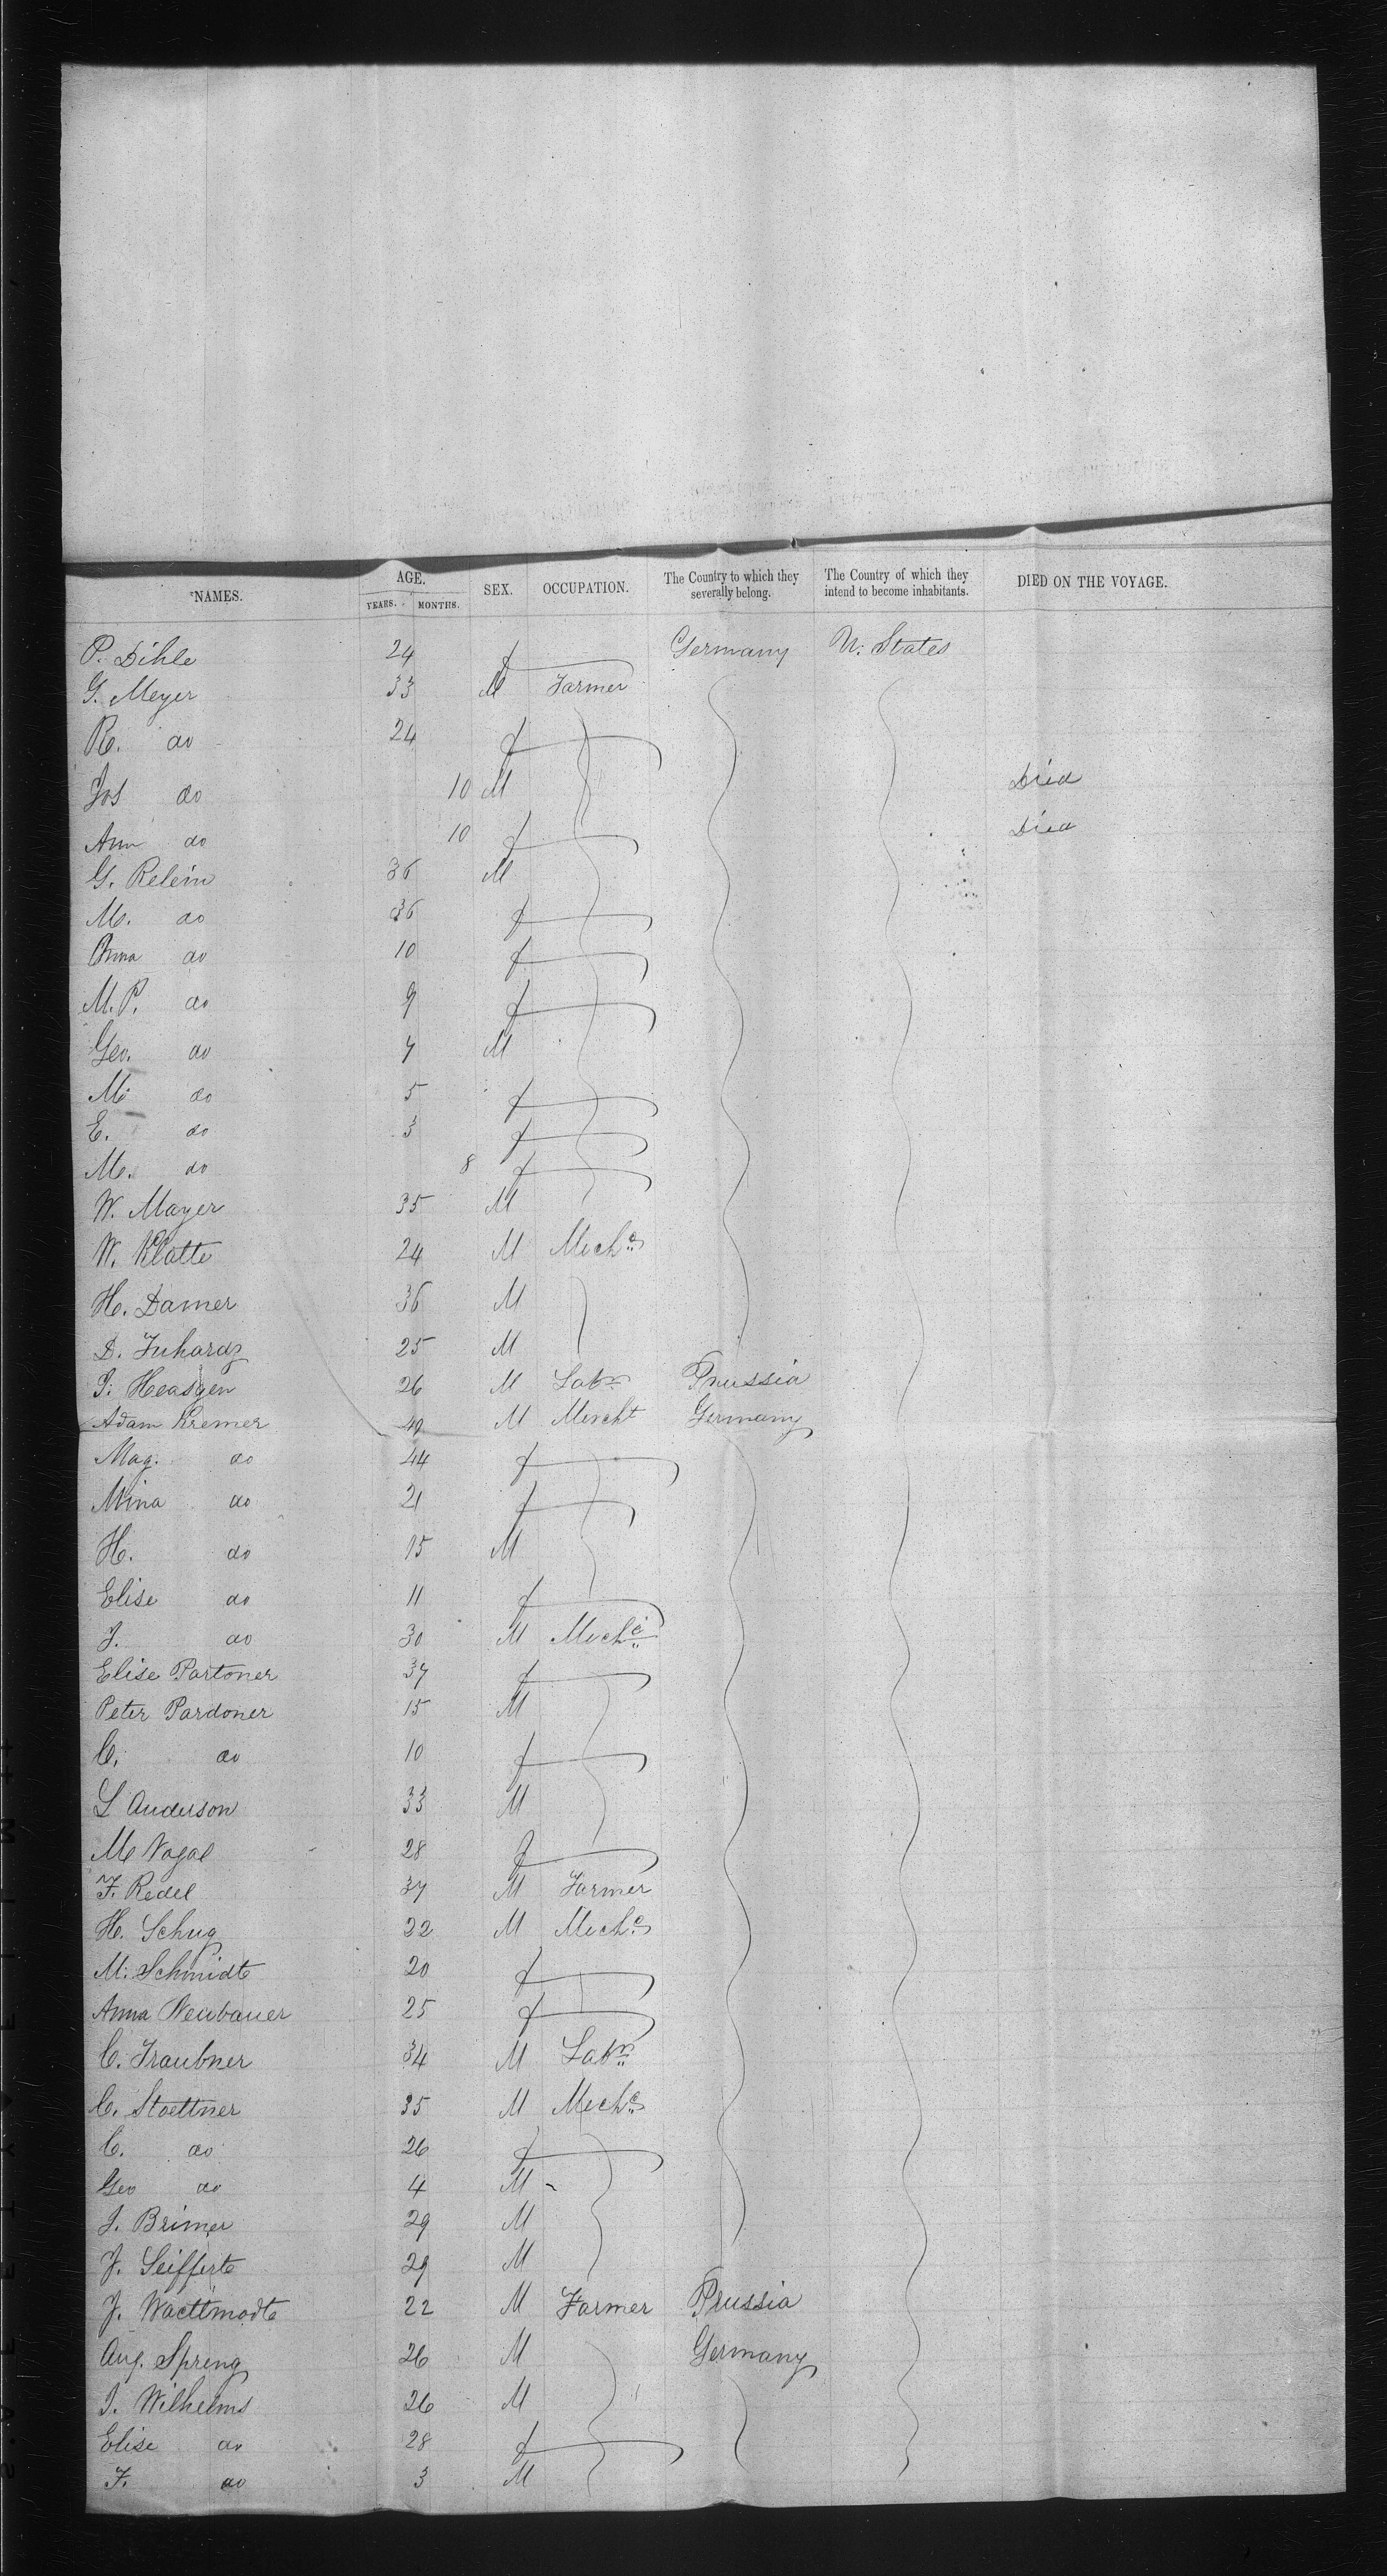 NAMES. AGE. YEARS. MONTHS. SEX. OCCUPATION. The Country to which they severally belong. The Country of which they intend to become inhabitants. DIED ON THE VOYAGE.
P. Dihle 24 f Germany U. States
G. Meyer 33 M Farmer
R. do 24 f
Jos do 10 M Died
Ann do 10 f Died
G. Relein 36 M
M. do 36 f
Anna do 10 f
M. P. do 9 f
Geo. do 7 M
M. do 5 f
E. do 3 f
M. do 8 f
W. Mayer 35 M
W. Klatte 24 M Mechc
H. Damer 36 M
D. 25 M
26 M Labr Prussia
Adam Kremer 49 M Mercht Germany
Mag. do 44 f
Mina do 21 f
H. do 15 M
Elise do 11 f
J. do 30 M Mechc
Elise Partoner 37 f
Peter Pardoner 15 M
C. do 10 f
L Anderson 33 M
M Vogal 28 f
F. Redel 37 M Farmer
H. Schug 22 M Mechc
M. Schmidt 20 f
Anna Neubauer 25 f
C. Traubner 34 M Labr
C. Stoettner 35 M Mechc
C. do 26 f
Geo do 4 M
J. Brimer 29 M
J. Seifferte 29 M
J. 22 M Farmer Prussia
Aug. Spreng 26 M Germany
J. Wilhelms 26 M
Elise do 28 f
F. do 3 M